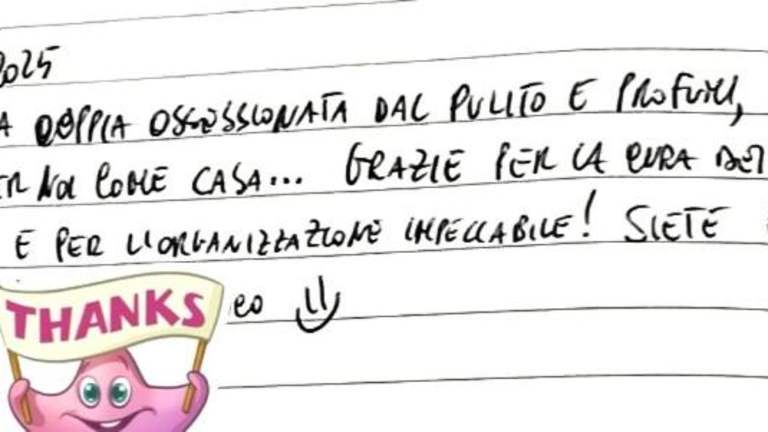 2025
A DOPPIA OSSESSIONATA DAL PULITO E PROFUMI,
ER NOI COME CASA... GRAZIE PER LA CURA DEI
E PER L'ORGANIZZAZIONE IMPECCABILE! SIETE
eo
THANKS